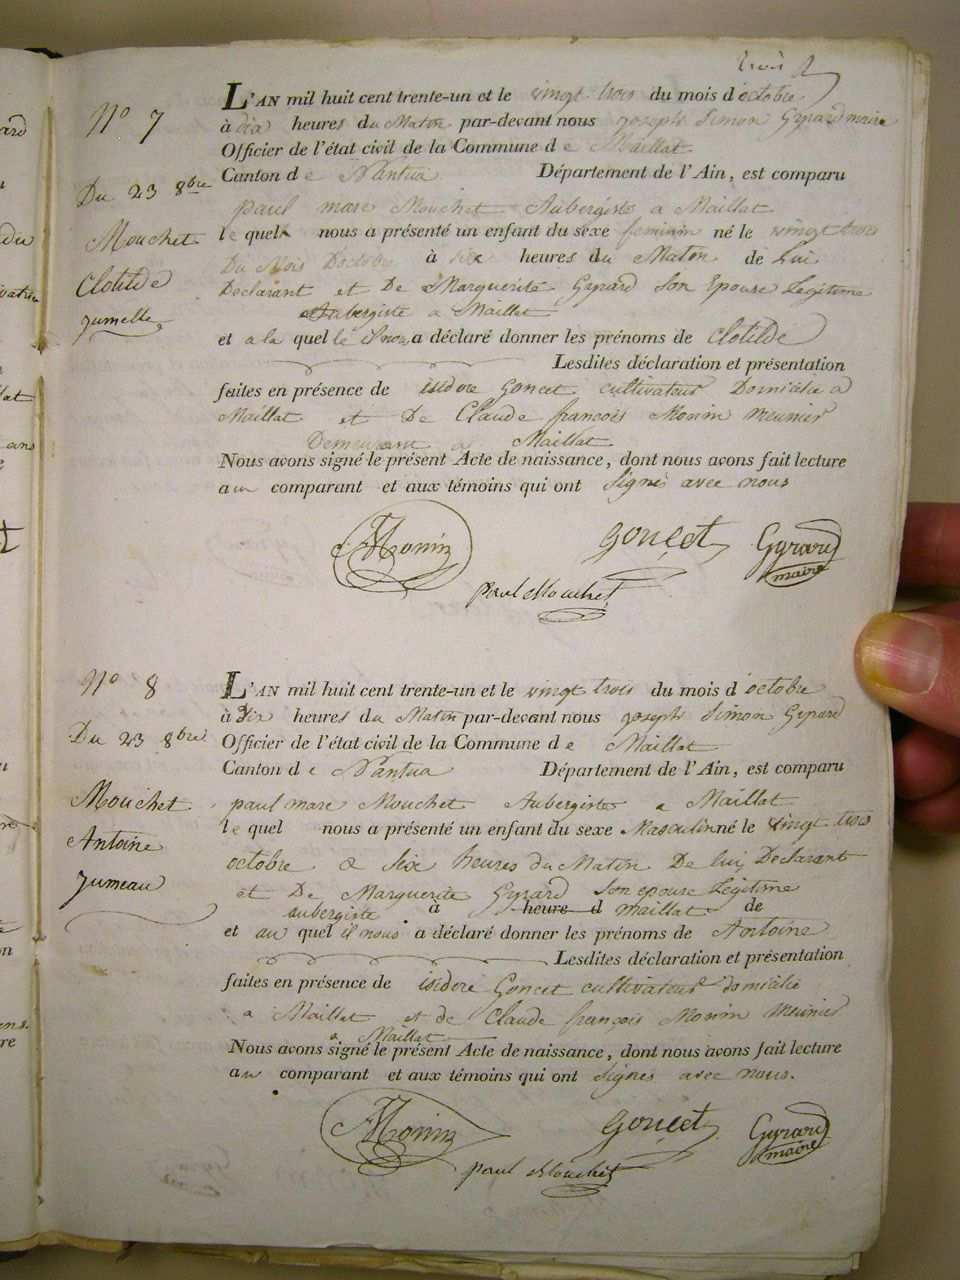 trois
N° 7
Du 23 8bre
Mouchet
Clotilde
Jumelle
L'AN mil huit cent trente-un et le vingt trois du mois d'octobre
à dix heures du Matin par-devant nous joseph Simon Gyrard maire
Officier de l'état civil de la Commune de Maillat
Canton de Nantua Département de l'Ain, est comparu
paul marc Mouchet Aubergiste a Maillat
le quel nous a présenté un enfant du sexe feminin né le vingt trois
Du Mois Doctobre à six heures du Matin de Lui
Declarant et De Marguerite Gyrard Son Epouse Legitime
Aubergiste a Maillat
et a la quel le il nous a déclaré donner les prénoms de Clotilde
Lesdites déclaration et présentation
faites en présence de isidore Goncet cultivateur Domicilié a
Maillat et De Claude françois Monin Meunier
Demeurant a Maillat
Nous avons signé le présent Acte de naissance, dont nous avons fait lecture
au comparant et aux témoins qui ont Signés avec nous
Monin
Goncet
Gyrard
maire
paul Mouchet
N° 8
Du 23 8bre
Mouchet
Antoine
Jumeau
L'AN mil huit cent trente-un et le vingt trois du mois d'octobre
à Dix heures du Matin par-devant nous joseph Simon Gyrard
Officier de l'état civil de la Commune de Maillat
Canton de Nantua Département de l'Ain, est comparu
paul marc Mouchet Aubergiste a Maillat
le quel nous a présenté un enfant du sexe Masculin né le vingt trois
octobre a Six heures du Matin De lui Declarant
et De Marguerite Gyrard Son epouse Legitime
aubergiste à heure d maillat de
et au quel il nous a déclaré donner les prénoms de Antoine
Lesdites déclaration et présentation
faites en présence de isidore Goncet cultivateur domicilié
a Maillat et de Claude françois Monin Meunier
a Maillat
Nous avons signé le présent Acte de naissance, dont nous avons fait lecture
au comparant et aux témoins qui ont Signés avec nous.
Monin
Goncet
Gyrard
maire
paul Mouchet